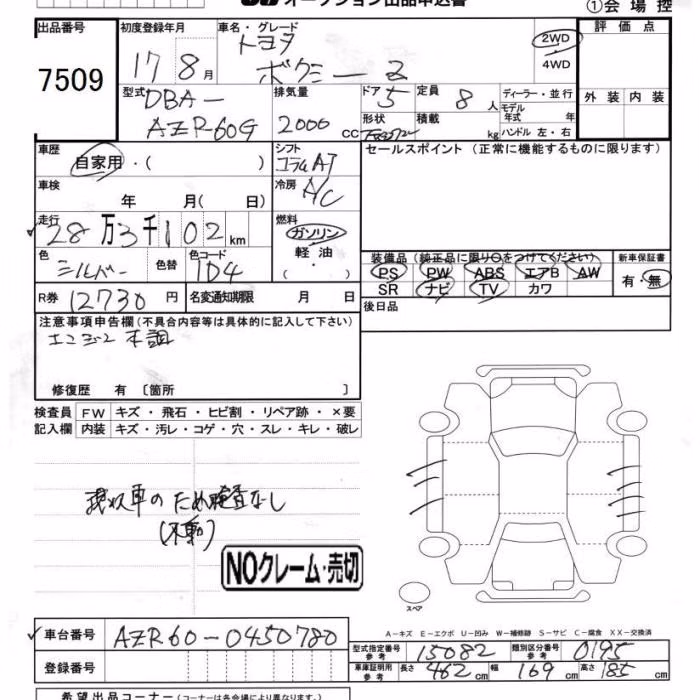 オークション出品申込書
①会場控
出品番号
7509
初度登録年月
17 8月
車名・グレード
トヨタ
ボクシー Z
2WD
4WD
評価点
外装 内装
型式
DBA-
AZR-60G
排気量
2000 cc
ドア 5
定員 8人
形状
積載 kg
ディーラー・並行
モデル年式 年
ハンドル 左・右
車歴
自家用・( )
シフト
コラムAT
セールスポイント (正常に機能するものに限ります)
車検
年 月( 日)
冷房
A/C
走行
28万3千102km
燃料
ガソリン
軽油
( )
色
シルバー
色替
色コード
1D4
装備品 (純正品に限り○をつけてください)
新車保証書
PS PW ABS エアB AW
SR ナビ TV カワ
有・無
R券 12730円
名変通知期限 月 日
後日品
注意事項申告欄 (不具合内容等は具体的に記入して下さい)
エンジン不調
修復歴 有 〔箇所 〕
検査員 FW キズ・飛石・ヒビ割・リペア跡・×要
記入欄 内装 キズ・汚レ・コゲ・穴・スレ・キレ・破レ
車のため検査なし
(不動)
NOクレーム・売切
スペア
A-キズ E-エクボ U-凹み W-補修跡 S-サビ C-腐食 XX-交換済
車台番号 AZR60-0450780
型式指定番号 参考 15082
類別区分番号 参考 0195
登録番号
車庫証明用 参考 長さ 462cm 幅 169cm 高さ 185cm
希望出品コーナー (コーナーは各会場により異なります。)